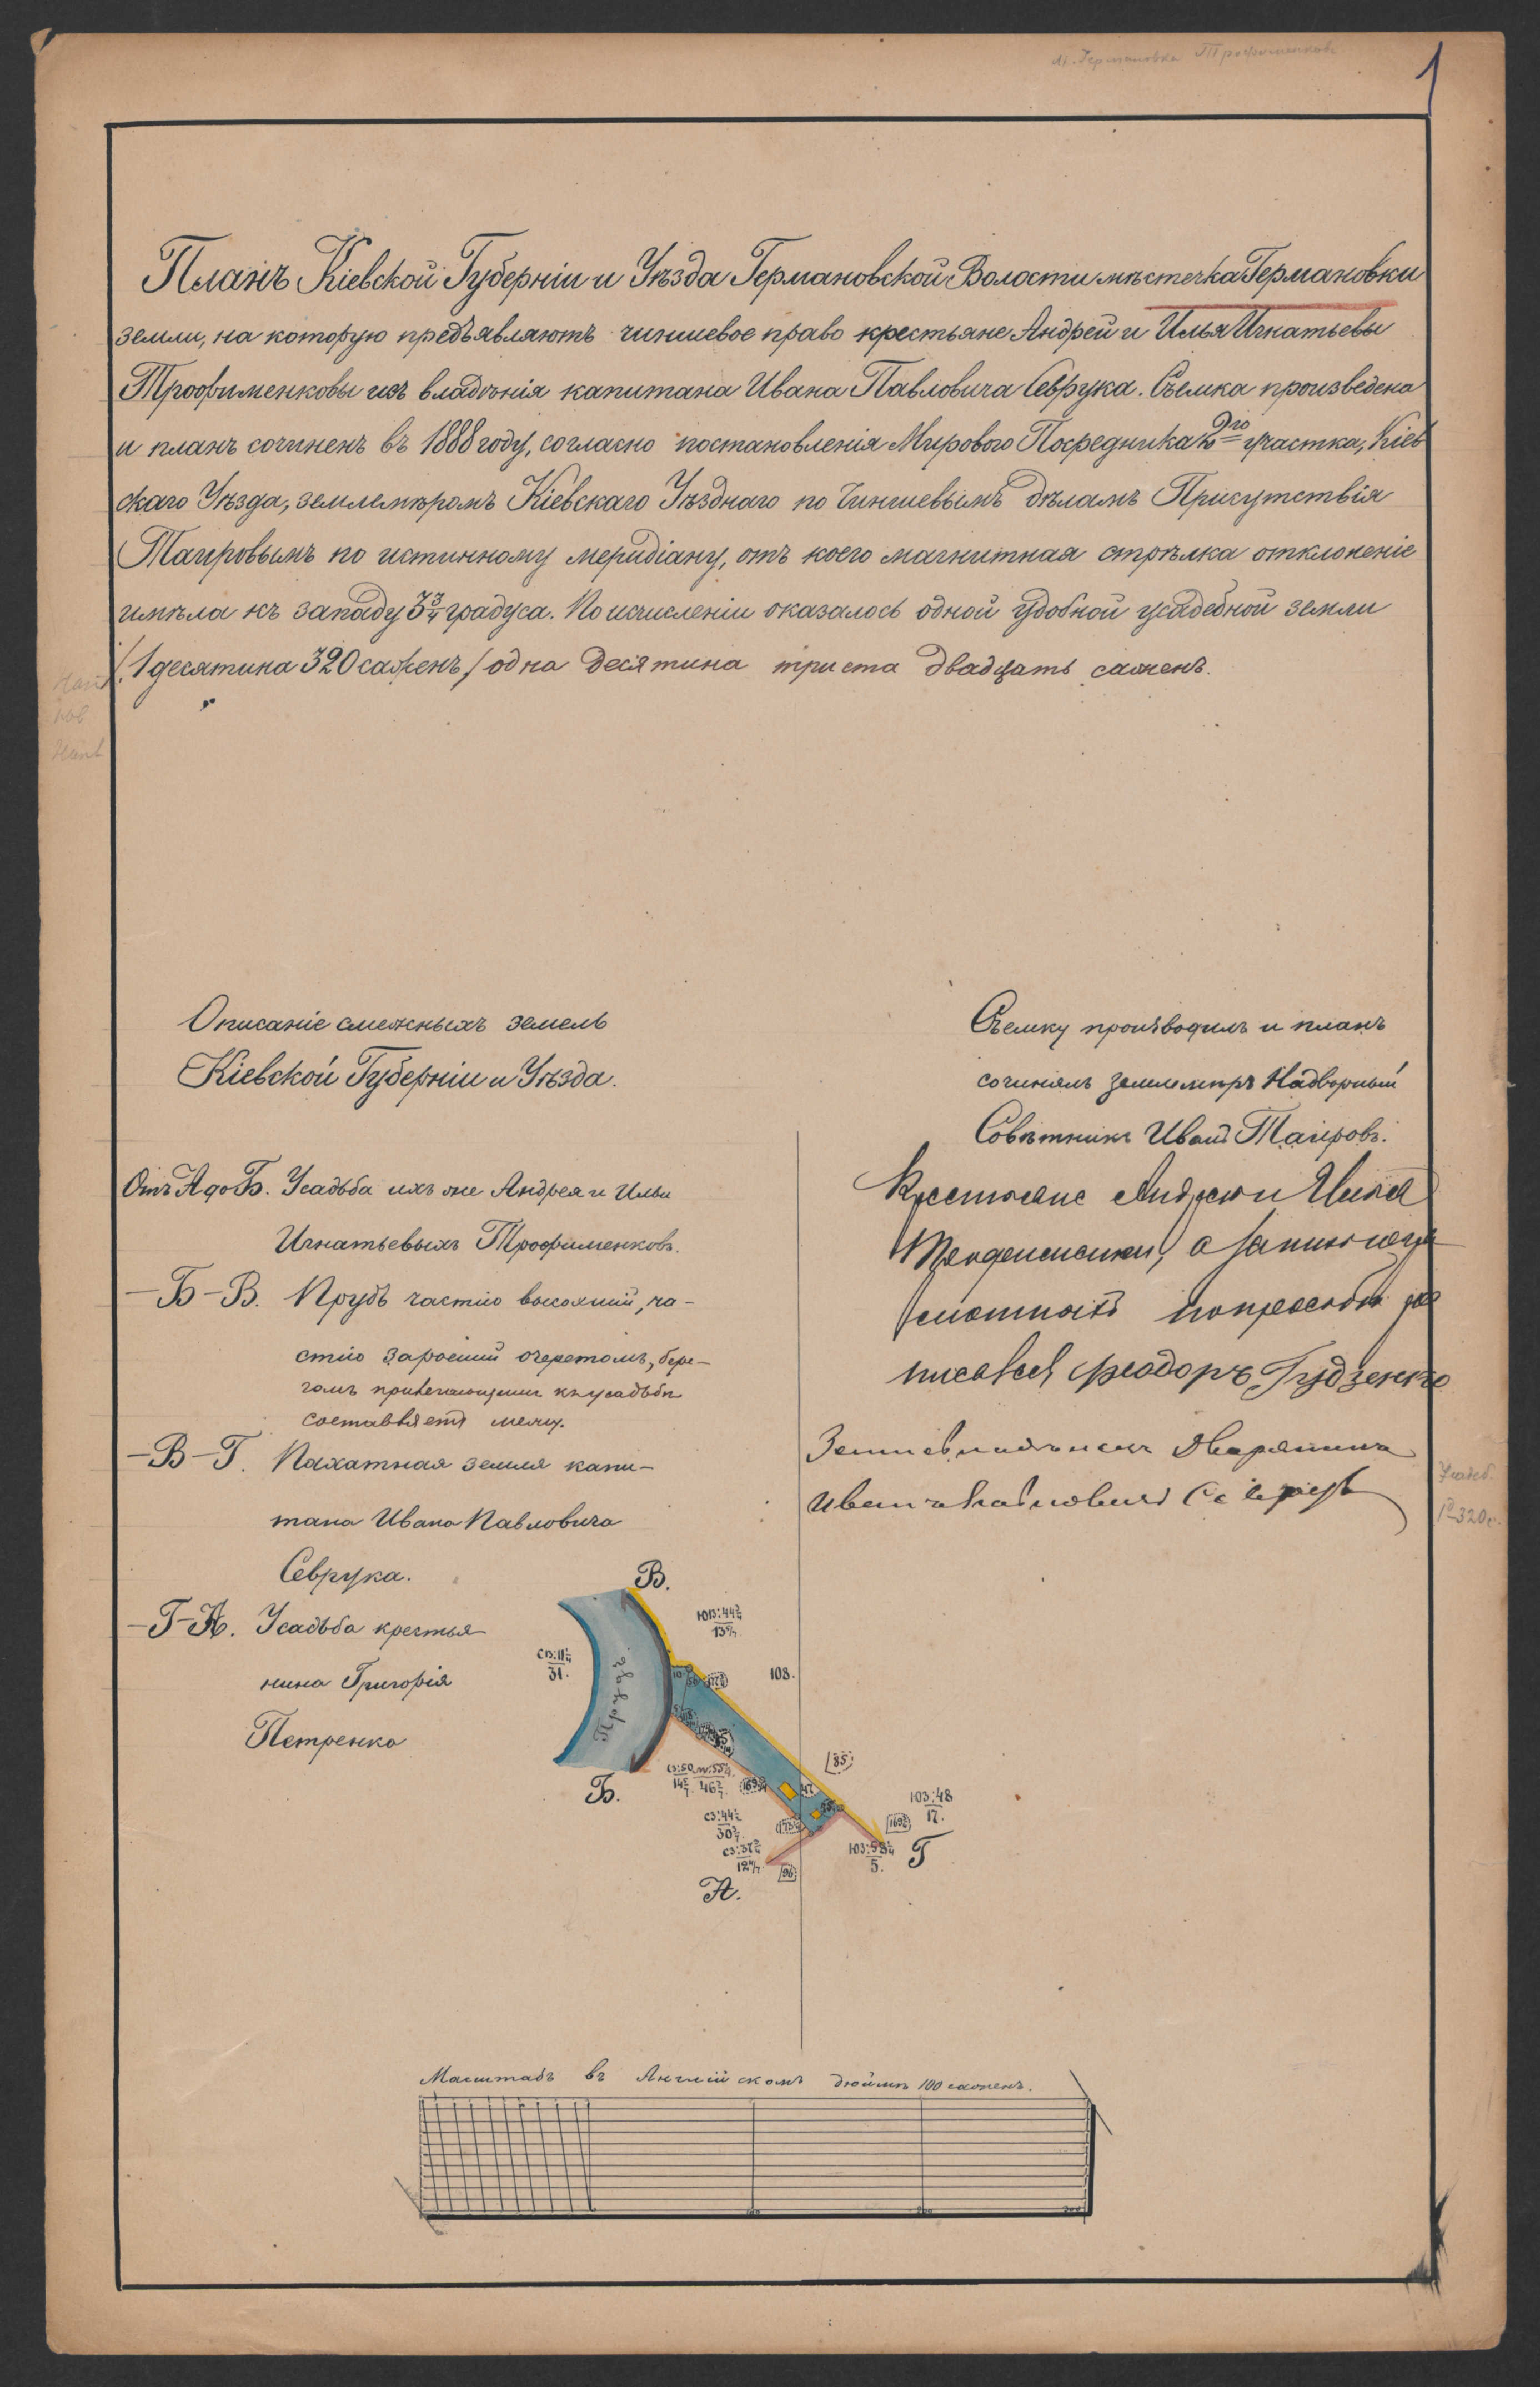 м. Германовка Трофименковъ
1
Планъ Кіевской Губерніи и Уѣзда Германовской Волости мѣстечка Германовки
земли, на которую предъявляютъ чиншевое право крестьяне Андрей и Илья Игнатьевы
Трофименковы изъ владѣнія капитана Ивана Павловича Севрука. Съемка произведена
и планъ сочиненъ въ 1888 году, согласно постановленія Мирового Посредника 2го участка, Кіев
скаго Уѣзда, землемѣромъ Кіевскаго Уѣзднаго по Чиншевымъ дѣламъ Присутствія
Таировымъ по истинному меридіану, отъ коего магнитная стрѣлка отклоненіе
имѣла къ западу 3 3/4 градуса. По исчисленіи оказалось одной удобной усадебной земли
/1 десятина 320 саженъ/ одна десятина триста двадцать саженъ.
Описаніе смежныхъ земель
Кіевской Губерніи и Уѣзда.
Отъ А до Б. Усадьба ихъ же Андрея и Ильи
Игнатьевыхъ Трофименковъ.
—Б—В. Прудъ частію высохшій, ча-
стію заросшій очеретомъ, бере-
гомъ прилегающимъ къ усадьбѣ
составляетъ межу.
—В—Г. Пахатная земля капи-
тана Ивана Павловича
Севрука.
—Г—А. Усадьба крестья-
нина Григорія
Петренко
Съемку производилъ и планъ
сочинялъ землемѣръ Надворный
Совѣтникъ Иванъ Таировъ.
Крестьяне Андрей и Илья
Трофименки, а за них
неграмотныхъ по просьбѣ рос
писался Феодоръ Гудзенко
Землевладѣлецъ Дворянинъ
Иванъ Павловичъ Севрукъ
Усадеб.
1д 320с.
В.
ЮВ:44 3/4
13 6/7
СВ:11 1/4
31.
108.
Прудъ
Б.
85
ЮЗ:48
17.
169 2/3
ЮЗ:58 1/4
5.
Г
СЗ:44 1/4
30 3/7
СЗ:37 3/4
12 4/7
96
А.
Масштабъ въ Англійскомъ дюймѣ 100 саженъ.
100
200
300